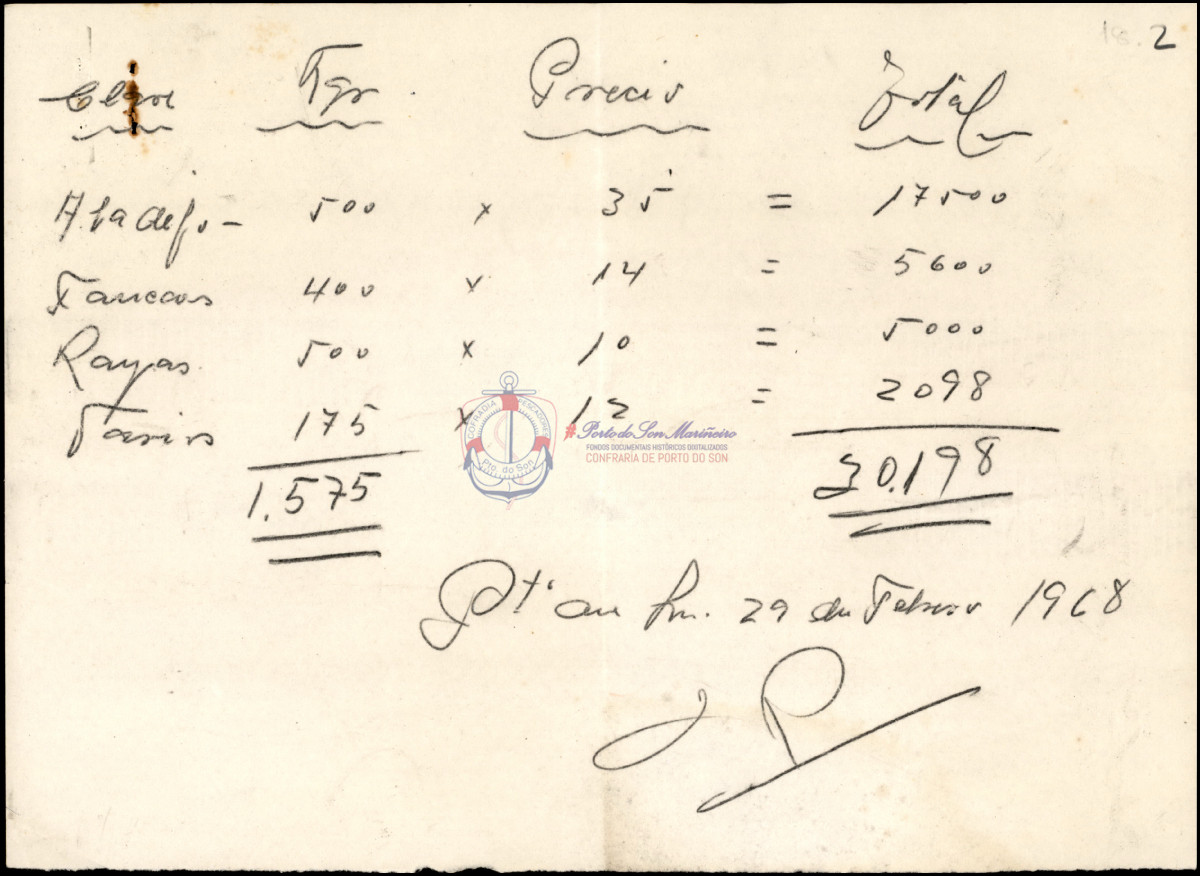 18. 2
Clase Kgr Precio Total
Abadejo - 500 x 35 = 17500
Fanecas 400 x 14 = 5600
Rayas. 500 x 10 = 5000
Varios 175 x 12 = 2098
1.575 30.198
COFRADIA PESCADORES
Pto. do Son
#Porto do Son Mariñeiro
FONDOS DOCUMENTAIS HISTÓRICOS DIGITALIZADOS
CONFRARÍA DE PORTO DO SON
Pto. Son. 29 de Febrero 1968
J P